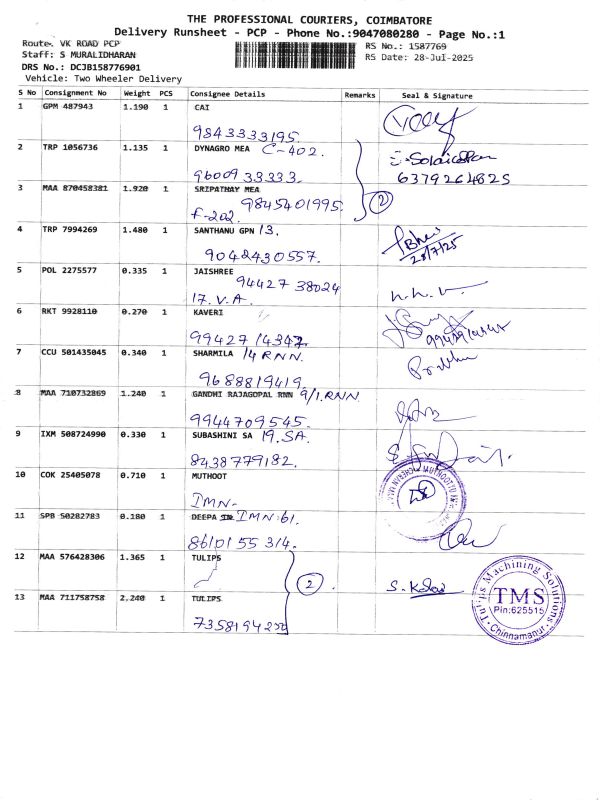 THE PROFESSIONAL COURIERS, COIMBATORE
Delivery Runsheet - PCP - Phone No.:9047080280 - Page No.:1
Route. VK ROAD PCP
RS No.: 1587769
Staff: S MURALIDHARAN
RS Date: 28-Jul-2025
DRS No.: DCJB158776901
Vehicle: Two Wheeler Delivery
S No Consignment No Weight PCS Consignee Details Remarks Seal & Signature
1 GPM 487943 1.190 1 CAI
9843333195.
2 TRP 1056736 1.135 1 DYNAGRO MEA C-402.
9600933333.
6379264825
3 MAA 870458381 1.920 1 SRIPATHAY MEA
9845401995.
F-202.
2
4 TRP 7994269 1.480 1 SANTHANU GPN 13.
9042430557.
28/7/25
5 POL 2275577 0.335 1 JAISHREE
94427 38024
17. V.A.
6 RKT 9928110 0.270 1 KAVERI
99427 14347.
7 CCU 501435045 0.340 1 SHARMILA 14 RNN.
9688819419.
Prabhu
8 MAA 710732869 1.240 1 GANDHI RAJAGOPAL RNN 9/1.RNN.
9944709545.
9 IXM 508724990 0.330 1 SUBASHINI SA 19.SA.
8438779182.
10 COK 25405078 0.710 1 MUTHOOT
IMN-
11 SPB 50282783 0.180 1 DEEPA IMN.61.
8610155314.
12 MAA 576428306 1.365 1 TULIPS
2
S.
13 MAA 711758758 2.240 1 TULIPS
7358194
Tulips Machining Solutions
TMS
Pin:625515
Chinnamanur.